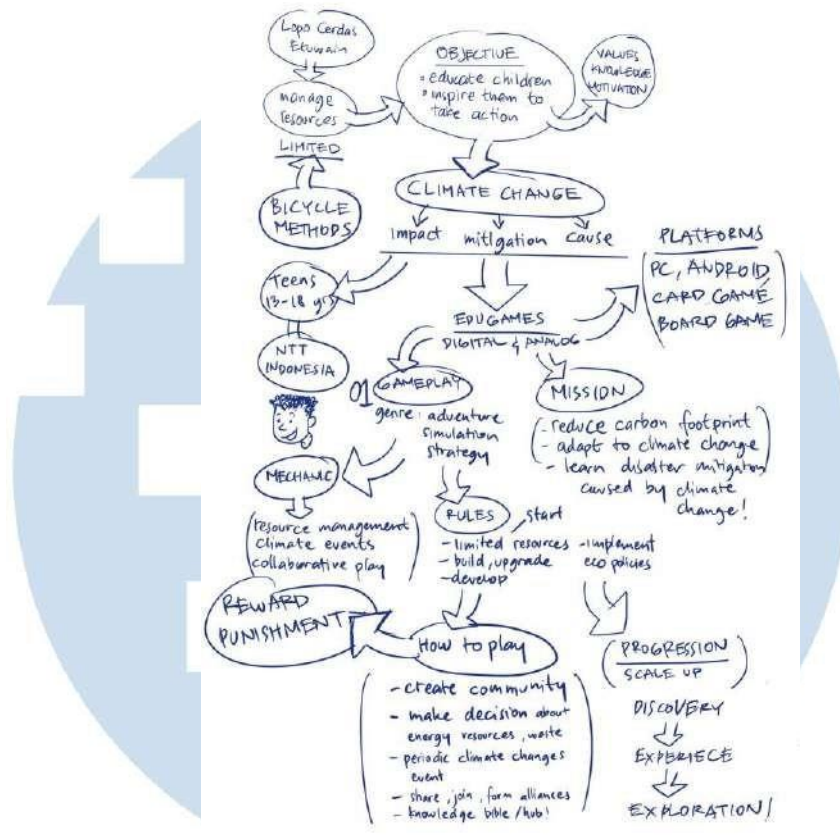 Lopo Cerdas
Ekuwain
manage
resources
LIMITED
BICYCLE
METHODS
OBJECTIVE
• educate children
• inspire them to
take action
VALUES
KNOWLEDGE
MOTIVATION
CLIMATE CHANGE
impact mitigation cause
Teens
13-18 yrs
NTT
INDONESIA
EDUGAMES
DIGITAL & ANALOG
PLATFORMS
PC, ANDROID
CARD GAME
BOARD GAME
01 GAMEPLAY
genre: adventure
simulation
strategy
MISSION
- reduce carbon footprint
- adapt to climate change
- learn disaster mitigation
caused by climate
change!
MECHANIC
resource management
climate events
collaborative play
RULES
start
- limited resources
- build, upgrade
- develop
- implement
eco policies
REWARD
PUNISHMENT
How to play
- create community
- make decision about
energy resources, waste
- periodic climate changes
event
- share, join, form alliances
- knowledge bible/hub!
PROGRESSION
SCALE UP
DISCOVERY
EXPERIECE
EXPLORATION!